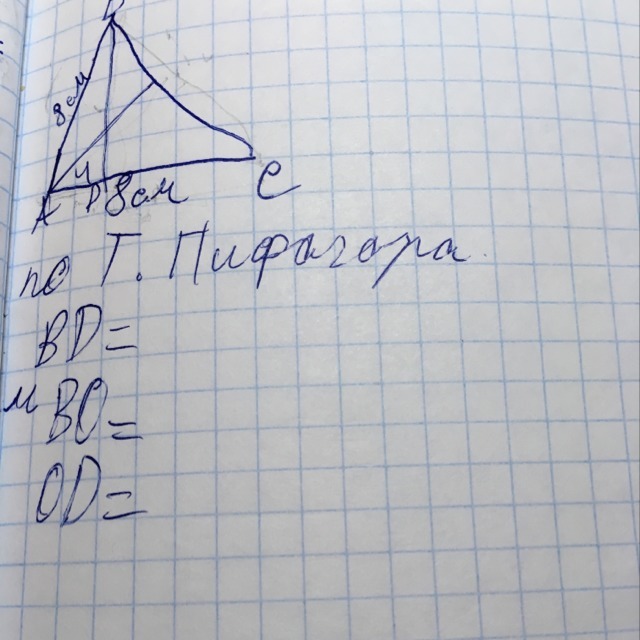 8см
4
D 8см
C
A
по Т. Пифагора.
BD=
и BO=
OD=